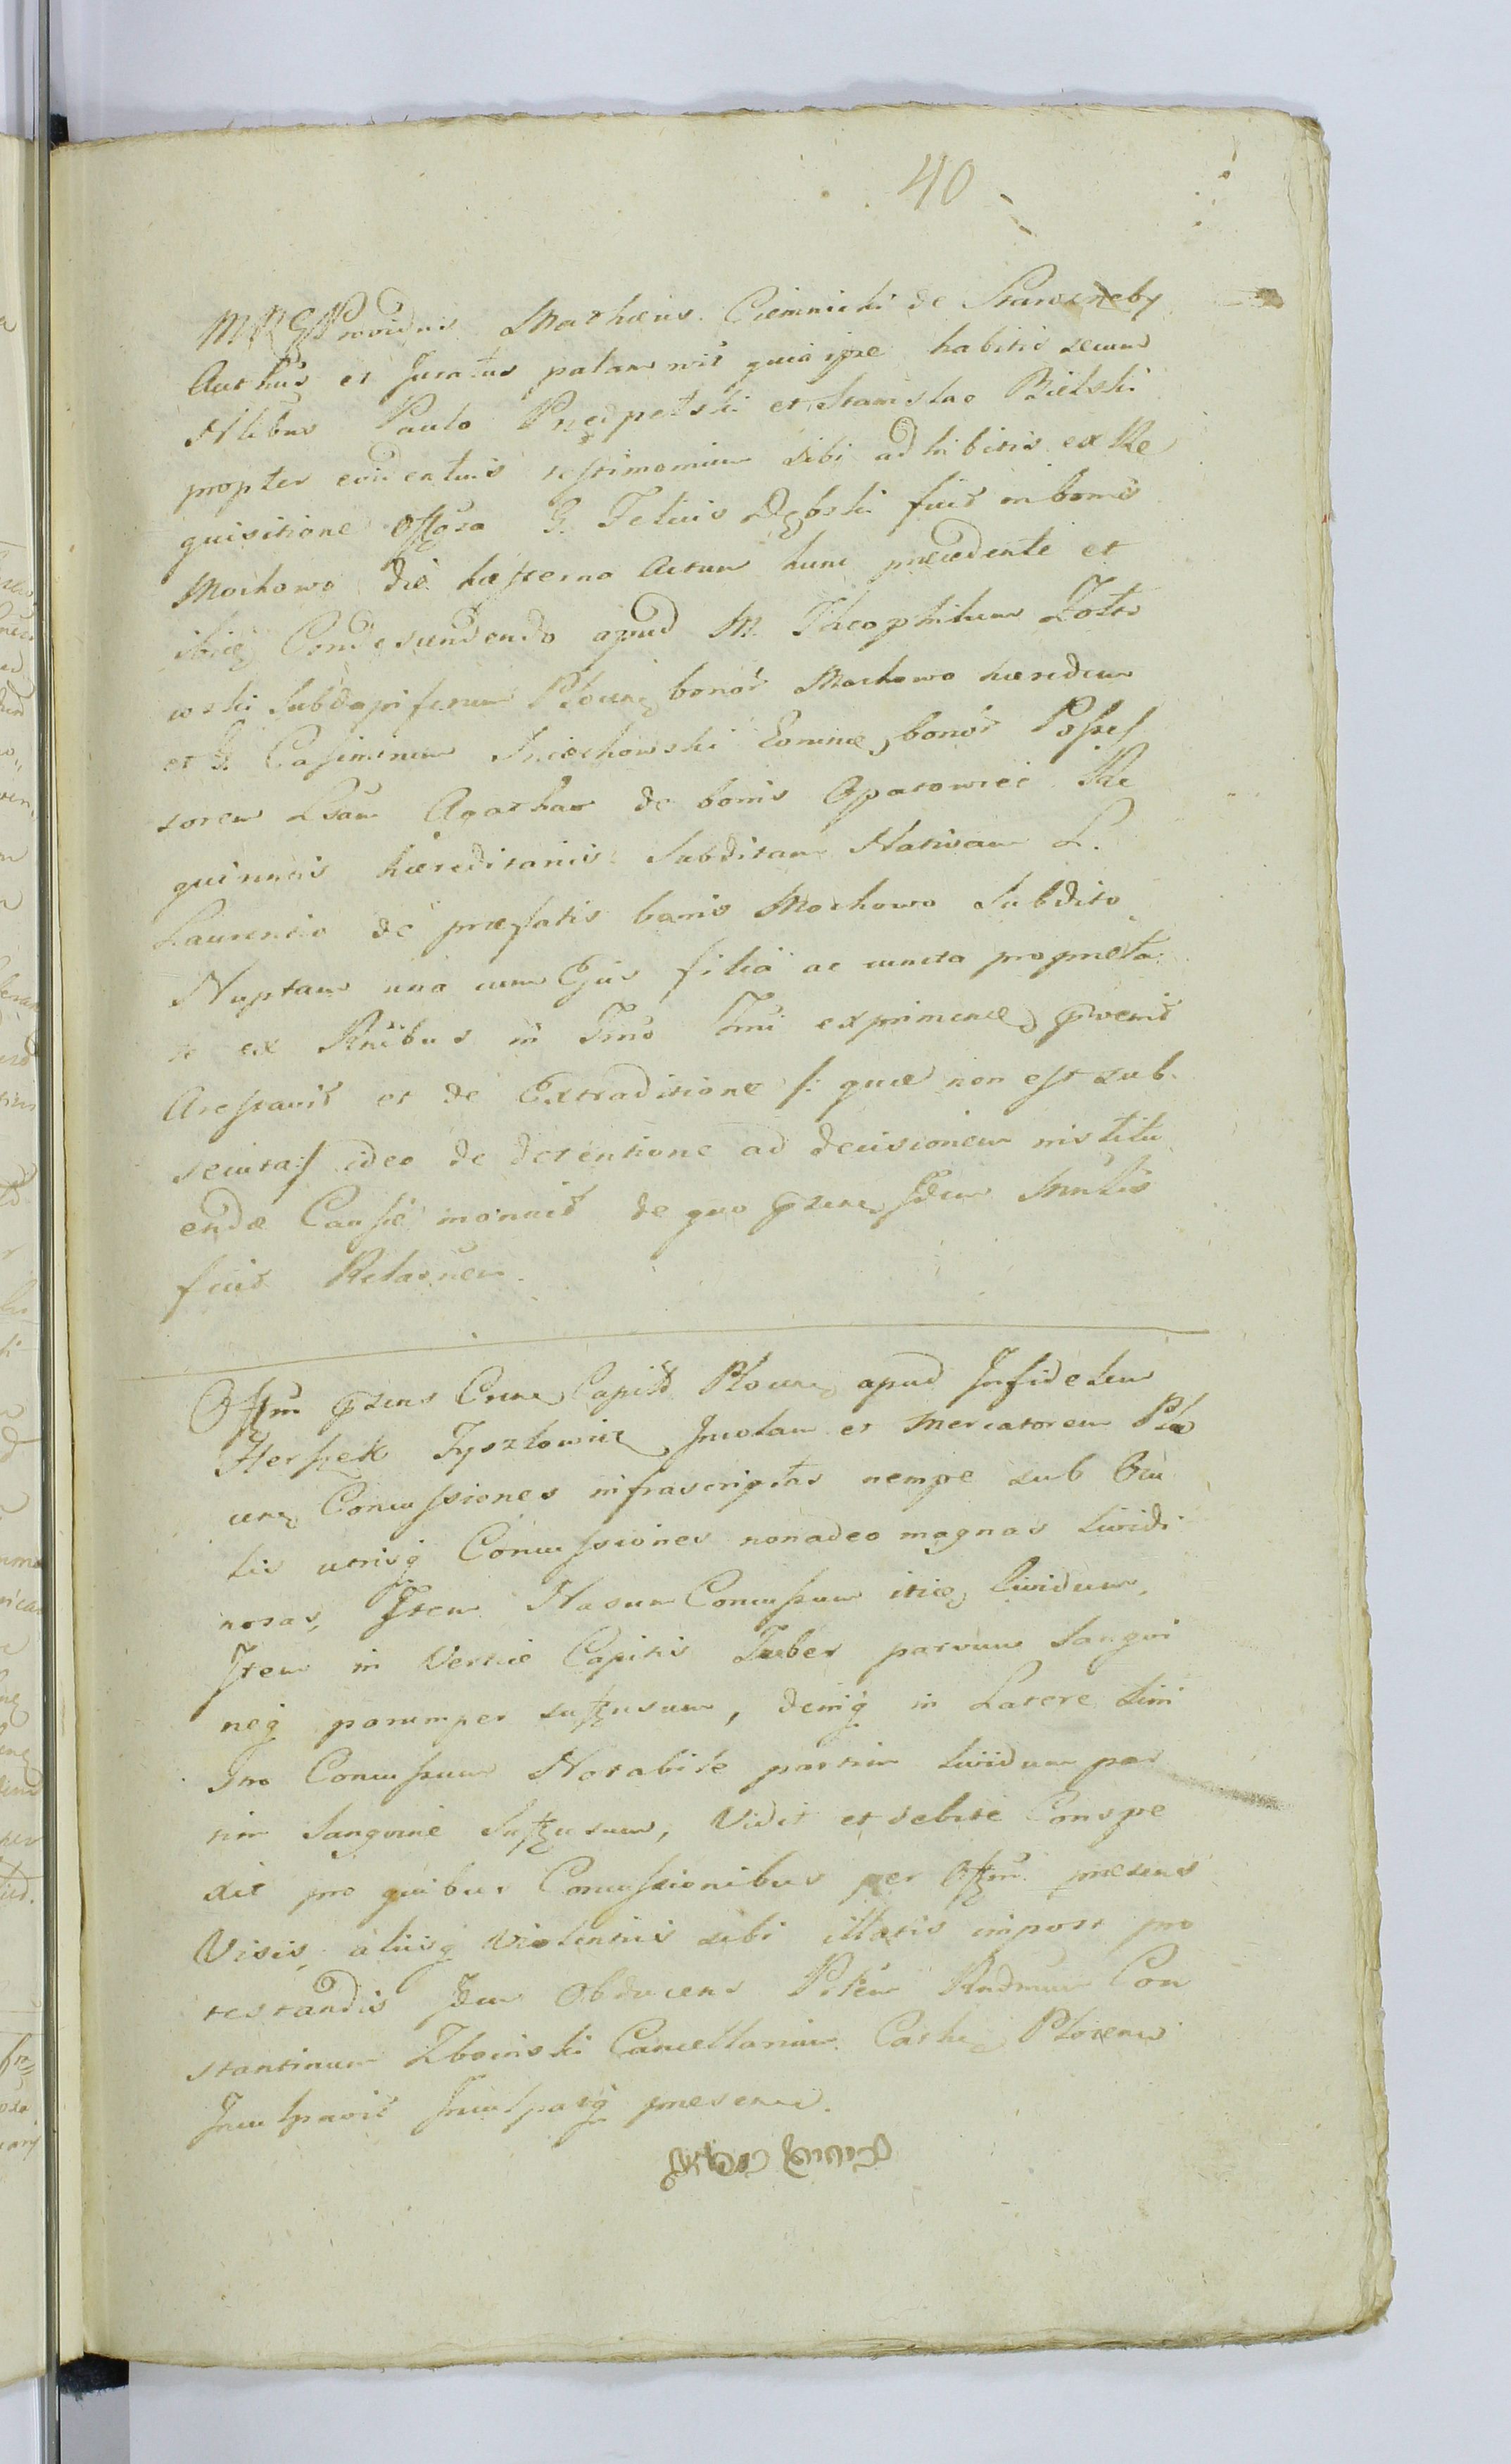 40
MRG Providus Mathæus Ciemnicki de Starozreby
Authus et Juratus palam rnit quia ipse habitis secum
Nlibus Paulo Przedpełski et Stanislao Bielski
propter evidentius testimonium sibi adhibitis ex Re
quisitione offosa G. Felicis Dębski fuit in bonis
Mochowo die hæsterno Actum hunc præcedente et
ibiq Condescendendo apud M. Theophilum Zoto
wski Subdapiferum Plocen bonor Mochowo hæredem
et G. Casimirum eormq bonor Posses
sorem Lsam Agatham de bonis Opatowiec Re
quirentis hæreditariis Subditam Nativam L.
Laurentio de præfatis bonis Mochowo Subdito
Nuptam una cum Ejus filia ac cuncta propmeta
te ex Rnibus in Tmo Tmi exprimend pvenit
Arestavit et de Extraditione /: quæ non est sub
secuta :/ ideo de detentione ad decisionem institu
endæ Causæ monuit de quo psens Idem Mnlis
fuit Relatnem.
Offm psens Cnse Capitl Plocen apud Infidelem
Herszek Jyszkowicz Incolam et Mercatorem Plo
cen Concussiones infrascriptas nempe sub Ocu
lis utrisq Concussiones non adeo magnas lividi
nosas, Item Nasum Concussum itidq lividum,
Item in Vertice Capitis Tuber parvum Sangvi
neq parumper suffusum, deniq in Latere Sini
stro Concussum Notabile partim lividum par
tim Sangvine Suffusum, Vidit et debite Conspe
xit pro quibus Concussionibus per Offm præsens
Visis, aliisq Violentiis sibi illatis impost pro
testandis Idem Obducens Prlem Rndmum Con
stantinum Zboinski Cancellarium Cathe Plocensem
Inculpavit Inculpatq præsens.